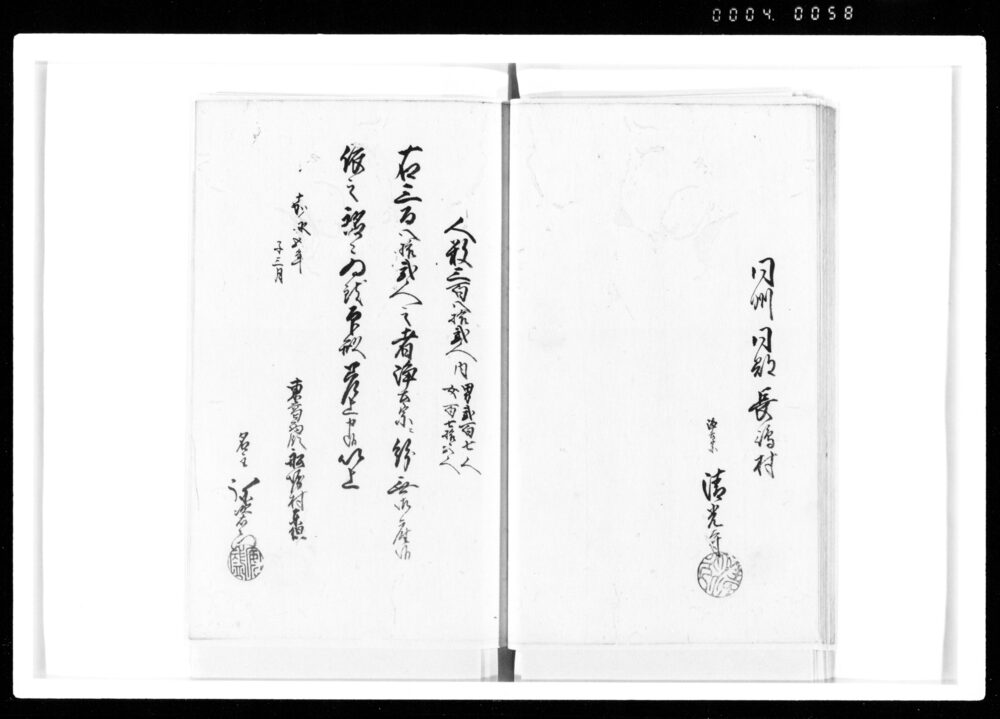 0004. 0058
同州同郡長嶋村
浄土宗 清光寺
人数三百八拾弐人 内
男弐百七人
女百七拾
右三百八拾弐人之者浄土宗ニ紛無御座候
依之銘々為致印形差上申候以上
嘉永五年
子三月
村東組
名主